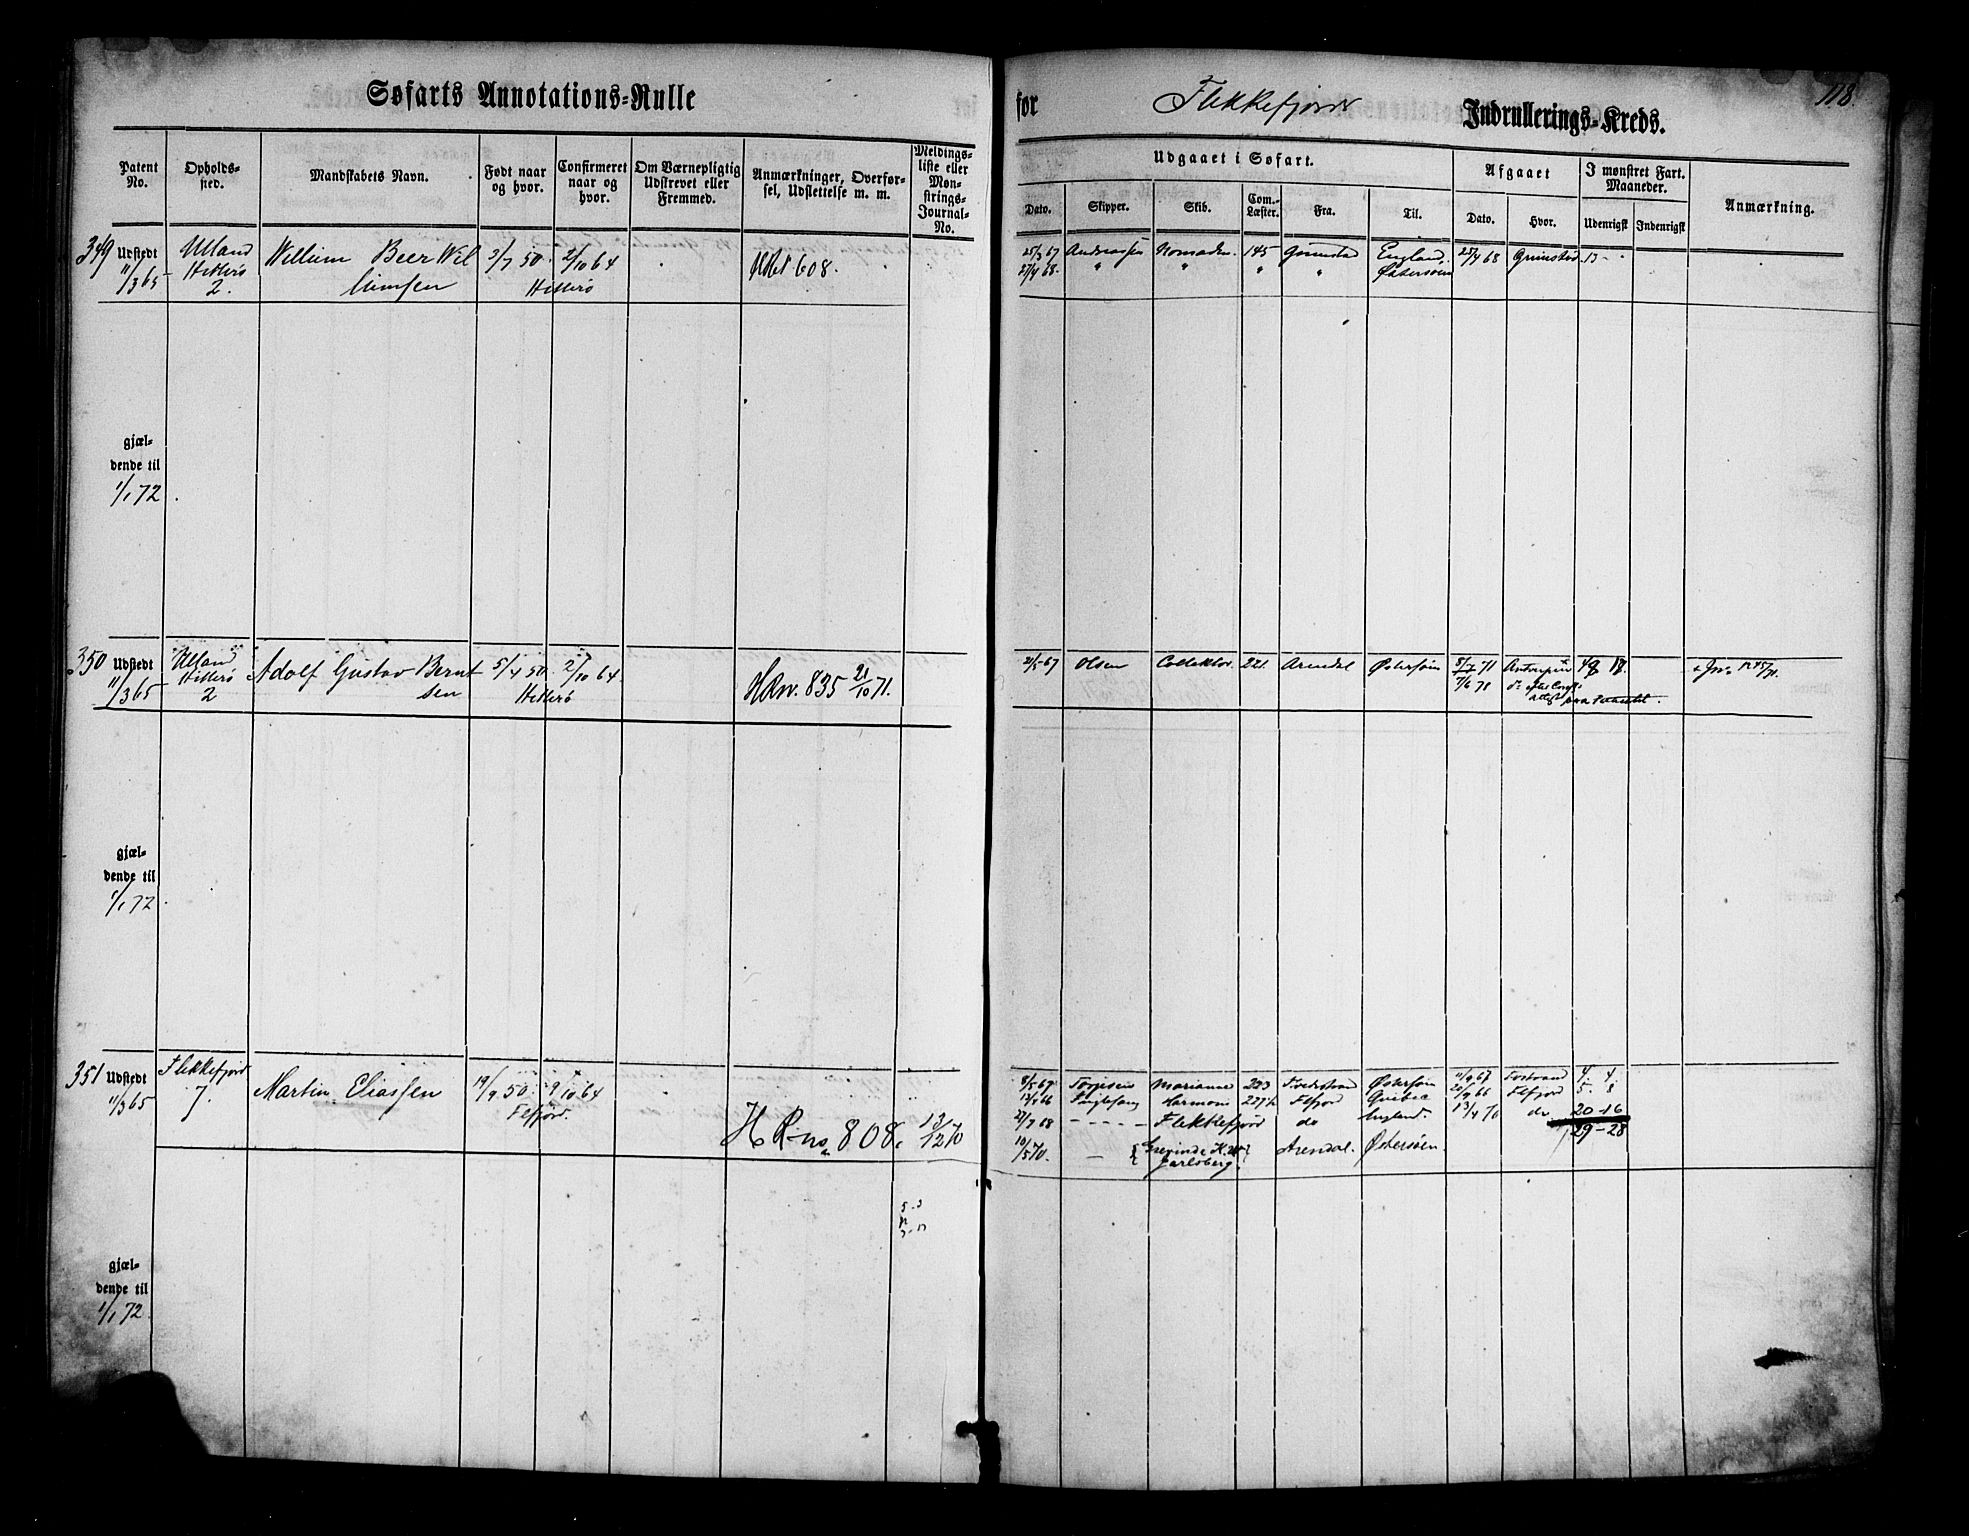 Søfarts Annotations-Rulle
for Flekkefjords Indrullerings-Kreds.
118.
Patent No.
Opholdssted.
Mandskabets Navn.
Født naar og hvor.
Confirmeret naar og hvor.
Om Værnepligtig Udstrevet eller Fremmed.
Anmærkninger, Overførsel, Udslettelse m. m.
Meldingsliste eller Mønstrings-Journal-No.
Udgaaet i Søfart.
Dato. Skipper. Skib. Com.-Læster. Fra. Til.
Afgaaet
Dato. Hvor.
I mønstret Fart. Maaneder.
Udenrigsk Indenrigsk
Anmærkning.
349 Udstedt 11/3 65
Ulland Hitterø 2.
Willum Beer Willumsen
3/7 50. 2/10 64
Hitterø
608.
25/3 67 Andreassen Nomaden 145 Grimstad England, 25/4 68 Grimstad 13
27/4 68 " " " " Østersøen
gjældende til
1/1 72
350 Udstedt 11/3 65
Ulland Hitterø 2
Adolf Gustav Berntsen
5/4 50. 2/10 64
Hitterø
HRno. 835 21/10 71.
Olsen Collektor 221. Arendal Østersøen 71 Antwerpen 18.
7/6 71
gjældende til
1/1 72
351 Udstedt 11/3 65
Flekkefjord 7.
Martin Eliassen
19/9 50. 9/10 64
Flfjord.
H R-no 808. 13/12 70
8/5 67 Torjesen Marianne 233 Østersøen 11/9 67 4. 4
Harmoni 227½ Flfjord Quebec 66 Flfjord 5. 8
21/7 68 - - - - - Flekkefjord do England. 13/4 70 do 20-16
29-28
10/5 70. — { Grevinde Jarlsberg. } Arendal. Østersøen.
gjældende til
1/1 72